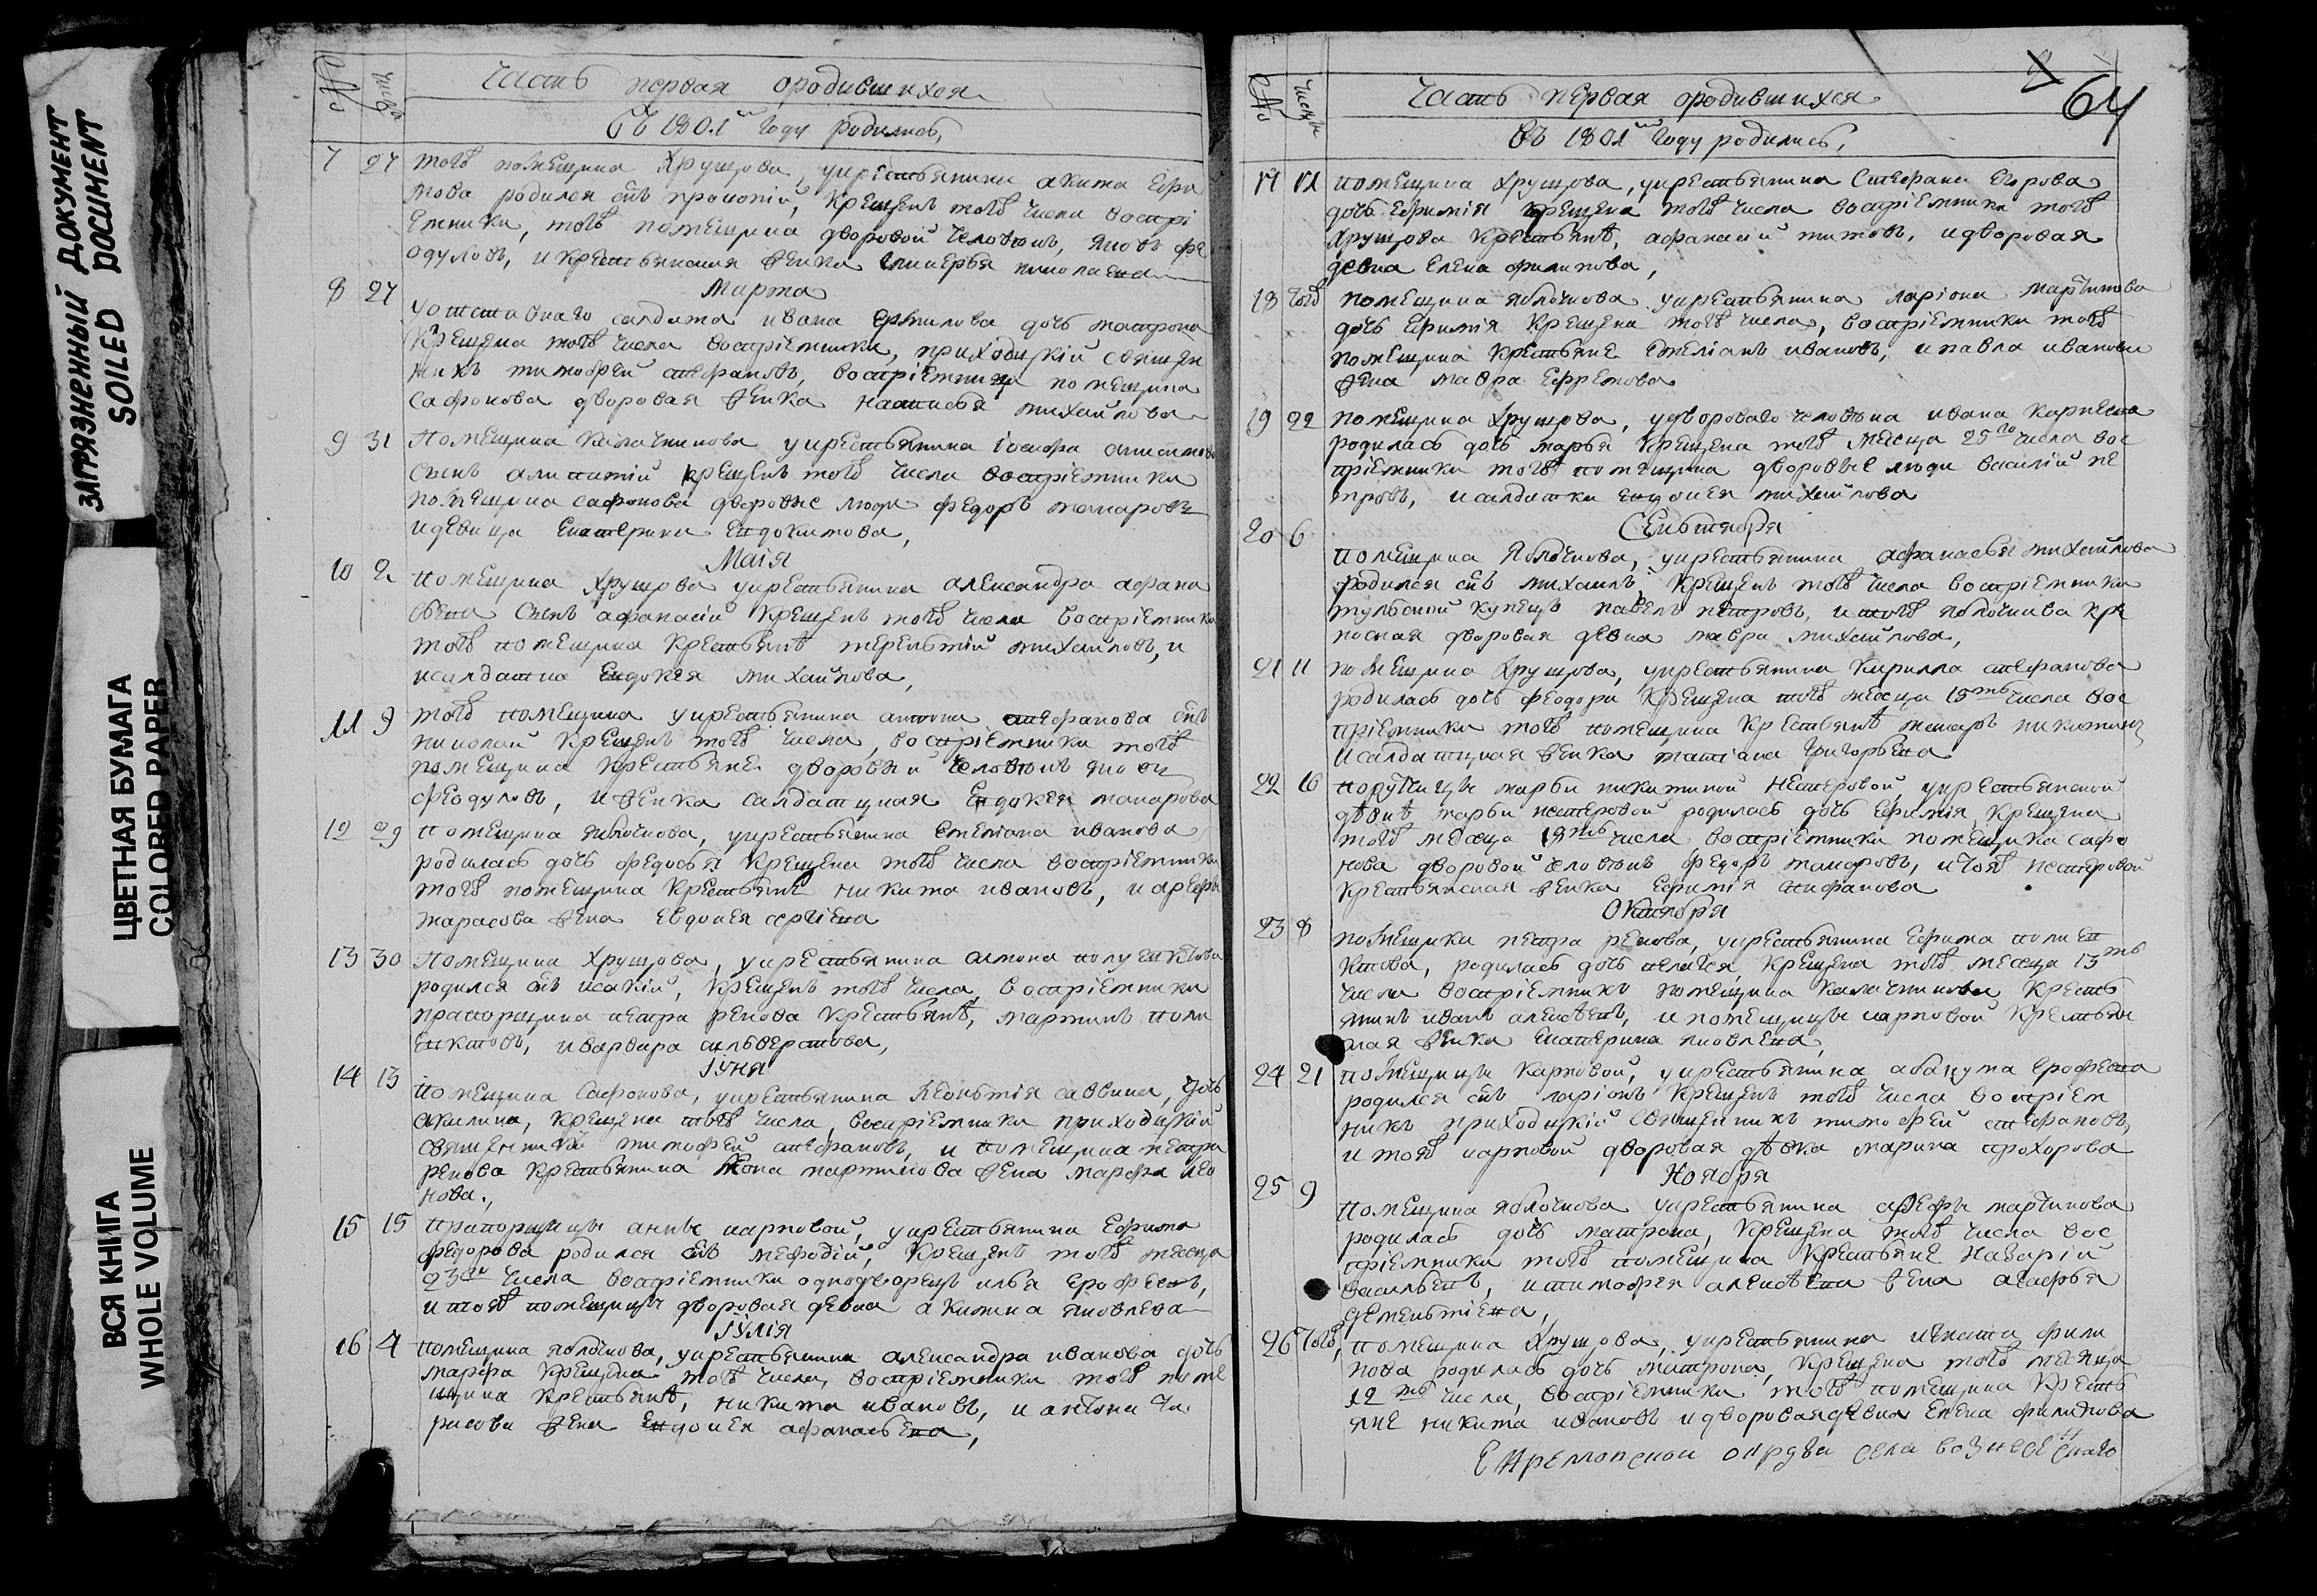 ЗАГРЯЗНЕННЫЙ ДОКУМЕНТ
SOILED DOCUMENT
ЦВЕТНАЯ БУМАГА
COLORED PAPER
ВСЯ КНИГА
WHOLE VOLUME
№ число
Часть первая ородившихся
Въ 1801м году родились,
7 27 тогѡ помещика Хрущова, украстьянина акима
мова родился снъ прокопій, крещенъ тогѡ числа воспрі
емники, тогѡ помещика дворовой человекъ, яковъ фе
одуловъ, и крестьянская женка николаева
Марта
8 27 уотставнаго салдата ивана дочь матрона
крещена тогѡ числа воспріемники, приходцкій священ
никъ тимофей стефановъ, воспріемница помещика
сафонова дворовая женка настасья михайлова
9 31 Помещика Калачникова укрестьянина іосифа анисимова
сынъ алимпій крещенъ тогѡ числа воспріемники
помещика сафонова дворовые люди федоръ макаровъ
и девица екатерина евдокимова,
Маія
10 2 помещика Хрущова укрестьянина александра афана
сьева сынъ афанасій крещенъ тогѡ числа воспріемники
тогѡ помещика крестьянѣ терентій михайловъ, и
исалдатка евдокея михайлова,
11 9 тогѡ помещика укрестьянина антона стефанова снъ
николай крещенъ тогѡ числа, воспріемники тогѡ
помещика крестьяне дворовый человекъ яковъ
феодуловъ, и женка салдатцкая евдокея макарова
12 29 помещика яблочкова, укрестьянина емеліана иванова
родилась дочь федосья крещена тогѡ числа воспріемники
тогѡ помещика крестьяне никита ивановъ, и арефы
тарасова жена евдокея сергіева
13 30 Помещика Хрущова, укрестьянина симона полуехктова
родился снъ исакій, крещенъ тогѡ числа, воспріемники
прапорщика петра рехова крестьянѣ, мартинъ поли
ехктовъ, иварвара сильверстова,
Іуня
14 13 помещика Сафонова, укрестьянина леонтія саввина, дочь
акилина, крещена тогѡ числа, воспріемники приходцкій
священникъ тимофей стефановъ, и помещика петра
рехова крестьянина мартинова жена марфа лео
нова,
15 15 прапорщицы анны карповой, укрестьянина ефима
федорова родился снъ мефодій, крещенъ тогѡ месеца
23го числа воспріемники однодворецъ илья ерофеевъ,
и тояѡ помещицы дворовая девка акилина яковлева
Іулія
16 4 помещика яблочкова, укрестьянина александра иванова дочь
марфа крещена тогѡ числа, воспріемники тогѡ поме
щика крестьянѣ, никита ивановъ, и антона та
расова жена евдокея афанасьева,
64
№ число
Часть первая ородившихся
въ 1801м году родились,
17 помещика Хрущова, укрестьянина Стефана Егорова
дочь ефимія крещена тогѡ числа воспріемники тогѡ
Хрущова крестьянѣ, афанасій титовъ, идворовая
девка елена филипова,
18 тогѡ помещика яблочкова укрестьянина ларіона мартинова
дочь ефимія крещена тогѡ числа, воспріемники тогѡ
помещика крестьяне емеліанъ ивановъ, и павла иванова
жена мавра ефремова
19 22 помещика Хрущова, удвороваго человека ивана карпеева
родилась дочь марья крещена тогѡ месеца 25го числа вос
пріемники тогѡ помещика дворовые люди василій пе
тровъ, исалдатка евдокея михайлова
Сентября
20 6 помещика Яблочкова, укрестьянина афанасья михайлова
родился снъ михаилъ крещенъ тогѡ числа воспріемники
тульский купецъ павелъ петровъ, и тогѡ яблочкова кре
посная дворовая девка мавра михайлова,
21 11 помещика Хрущова, укрестьянина Кирилла стефанова
родилась дочь феодора крещена тогѡ месеца 15го числа вос
пріемники тогѡ помещика крестьянѣ макаръ никитинъ
исалдатцкая женка татіана григорьева
22 16 порутчицы марьи никитиной нестеровой, укрестьянской
девкѣ марьи нестеровой родилась дочь ефимія крещена
тогѡ месеца числа воспріемники помещика сафо
нова дворовой человекъ федоръ макаровъ, итояѡ нестеровой
крестьянская женка ефимія нифанова
Октября
23 8 помещика петра рехова, укрестьянина ефима полиех
ктова, родилась дочь пелагея крещена тогѡ месеца 13го
числа воспріемники помещика калачникова кресть
янинъ иванъ алексѣевъ, и помещицы карповой крестьян
ская женка екатерина яковлева,
24 21 помещицы карповой, укрестьянина абакума ерофеева
родился снъ ларіонъ крещенъ тогѡ числа воспріем
никъ приходцкій священникъ тимофей стефановъ,
и тояѡ карповой дворовая дѣвка марина прохорова
Ноября
25 9 помещика яблочкова укрестьянина арефы мартинова
родилась дочь матрона, крещена тогѡ числа вос
пріемники тогѡ помещика крестьяне назарій
васильевъ, итимофея алексѣева жена агафья
дементіева,
26 тогѡ, помещика Хрущова, укрестьянина игната фили
пова родилась дочь матрона, крещена тогѡ месяца
12го числа, воспріемники тогѡ помещика кресть
яне никита ивановъ идворовая девка елена филипова
Ефремовской округи села вознесенскаго